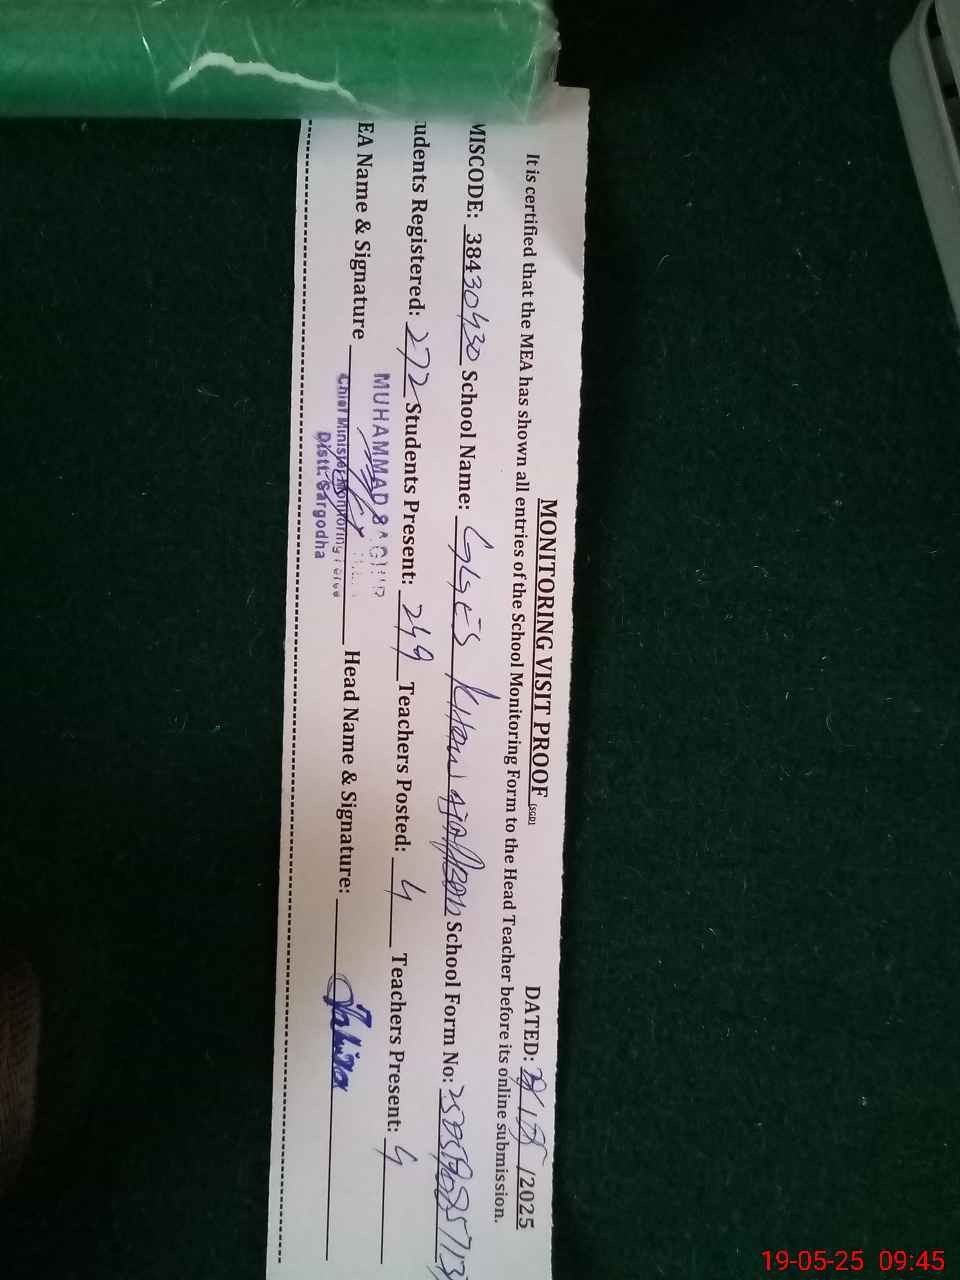 MONITORING VISIT PROOF [SGD] DATED: /2025
It is certified that the MEA has shown all entries of the School Monitoring Form to the Head Teacher before its online submission.
MISCODE: 38430430 School Name: School Form No:
udents Registered: 272 Students Present: 249 Teachers Posted: 4 Teachers Present: 4
MUHAMMAD
EA Name & Signature Head Name & Signature:
Chief Minister Monitoring Force
Distt. Sargodha
19-05-25 09:45